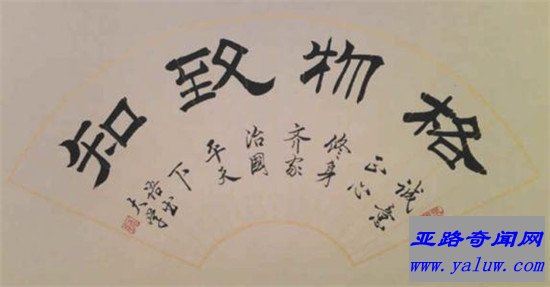 格物致知
诚意
正心
修身
齐家
治國
平天
下
语出
大学
亚路奇闻网
www.yaluw.com